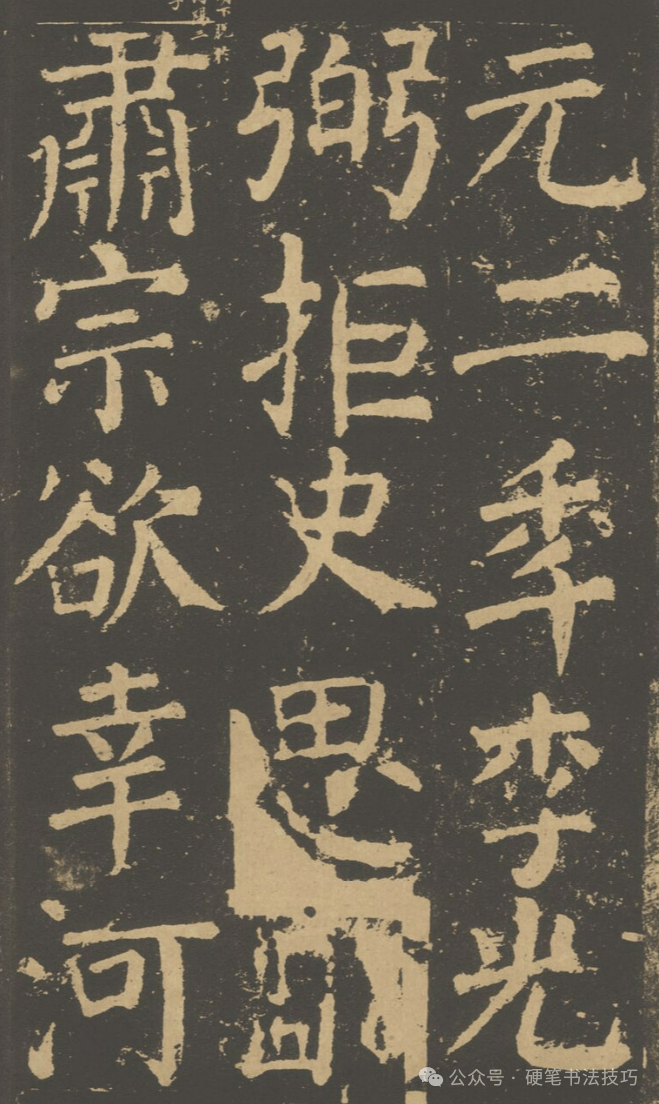 元二秊李光
弼拒史思
肅宗欲幸河
公众号 · 硬笔书法技巧